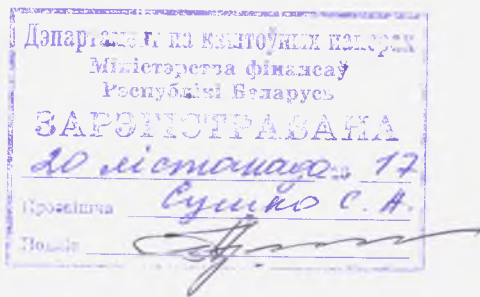 Дэпартамент па каштоўных паперах
Міністэрства фінансаў
Рэспублікі Беларусь
ЗАРЭГІСТРАВАНА
20 лістапада 20 17
Прозвішча Сушко С. А.
Подпіс